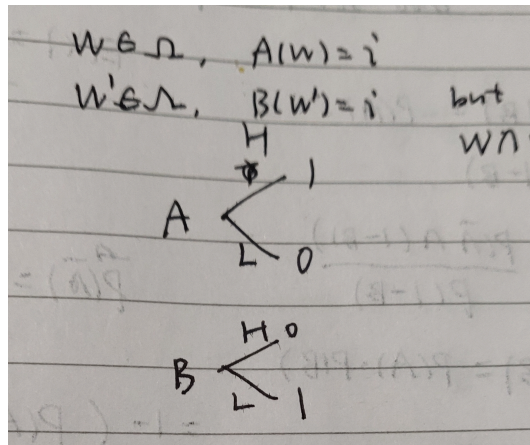 W ∈ Ω, A(W) = i
W' ∈ Ω, B(W') = i but
W ∩
H
1
A
L 0
H 0
B
L 1